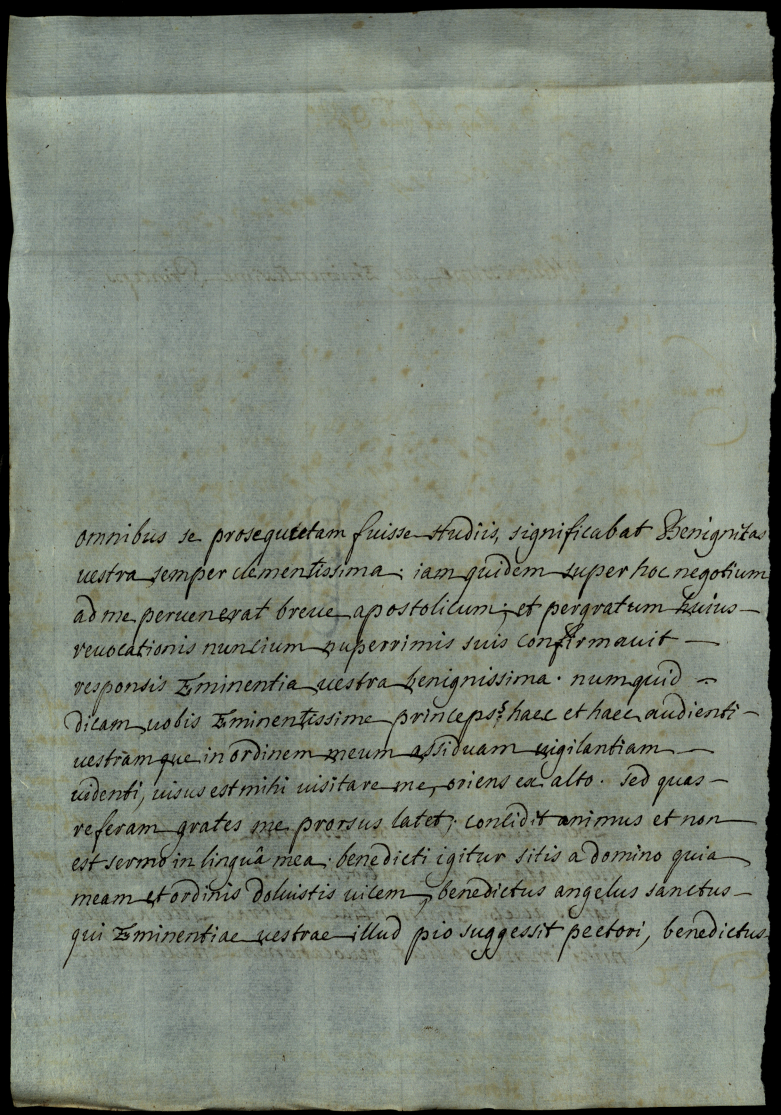 omnibus se prosequutam fuisse studiis, significabat Benignitas
vestra semper clementissima; iam quidem super hoc negotium
ad me pervenerat breve apostolicum; et pergratum huius
revocationis nuncium nuperrimis suis confirmavit
responsis Eminentia vestra benignissima. numquid
dicam vobis Eminentissime princeps? haec et haec audienti
vestramque in ordinem meum assiduam vigilantiam
videnti, visus est mihi visitare me, oriens ex alto. sed quas
referam grates me prorsus latet; concidit animus et non
est sermo in linguâ mea. benedicti igitur sitis a domino quia
meam et ordinis doluistis vicem, benedictus angelus sanctus
qui Eminentiae vestrae illud pio suggessit pectori, benedictus